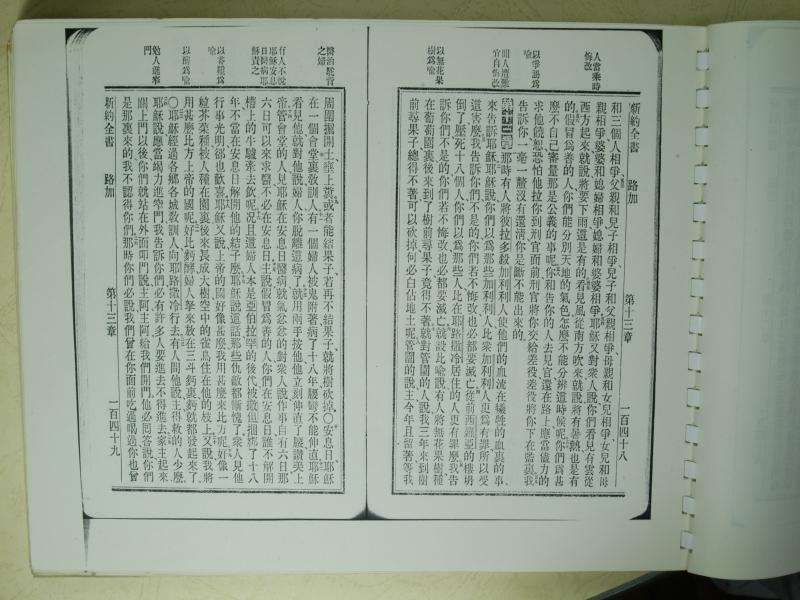 新約全書
路加
第十三章
一百四十八
人當乘時悔改
以爭訟爲喻
宜自悔改
以無花果樹爲喻
和三個人相爭父親和兒子相爭兒子和父親相爭母親和女兒相爭女兒和母
親相爭婆婆和媳婦相爭媳婦和婆婆相爭耶穌又對衆人說你們看見有雲從
西方起來就說將要下雨還是有的看見風從南方吹來就說將有暑熱也是有
的假冒爲善的人你們能分別天地的氣色怎麼不能分辨這時候呢你們爲甚
麼不自己審量那是公義的事呢你和告你的人去見官還在路上應當儘力的
求他饒恕恐怕他拉你到刑官面前刑官將你交給差役差役將你下在監裏我
告訴你一毫一釐沒有還淸你是斷不能出來的
那時有人將彼拉多殺加利利人使他們的血流在犧牲的血裏的事
來告訴耶穌耶穌說你們以爲那些加利利人比衆加利利人更爲有罪所以受
這害麼我告訴你們不是的你們若不悔改也必都要滅亡從前西羅亞的樓坍
倒了壓死十八個人你們以爲那些人比在耶路撒冷居住的人更有罪麼我告
訴你們不是的你們若不悔改也必都要滅亡就設比喻說有人將無花果樹種
在葡萄園裏後來到了樹前尋果子竟得不著就對管園的人說我三年來到樹
前尋果子總得不著可以砍掉何必白佔地土呢管園的說主今年且留著等我
醫治駝背之婦
有人不悅耶穌安息日醫病耶穌責之
以芥種爲喻
以酵爲喻
勉人進窄門
周圍掘開土壅上糞或者能結果子若再不結果子就將樹砍掉〇安息日耶穌
在一個會堂裏敎訓人有一個婦人被鬼附著病了十八年腰彎不能伸直耶穌
看見他就對他說婦人你脫離這病了就用兩手按他他立刻伸直了腰讚美上
帝管會堂的人見耶穌在安息日醫病就氣忿忿的對衆人說作事自有六日那
六日可以來求醫不必在安息日主說假冒爲善的人你們在安息日誰不解開
槽上的牛驢牽去飲呢況且這婦人本是亞伯拉罕的後代被撒但捆綁了十八
年不當在安息日解開他的結子麼耶穌說這話那些仇敵都慚愧了衆人見他
行事光明卻也歡喜耶穌又說上帝的國好像甚麼我用甚麼來比方呢好像一
粒芥菜種被人種在園裏後來長成大樹空中的雀鳥住在他的枝上又說我將
用甚麼比方上帝的國呢好比麪酵婦人拏來放在三斗麪裏麪就都發起來了
〇耶穌經過各鄉各城敎訓人向耶路撒冷行去有人問他說主得救的人少麼
耶穌說應當竭力進窄門我告訴你們必有許多人要進去不得進去家主起來
關上門以後你們就站在外面叩門說主阿主阿給我們開門他必回答說你們
是那裏來的我不認得你們那時你們必說我們曾在你面前吃過喝過你也曾
新約全書
路加
第十三章
一百四十九